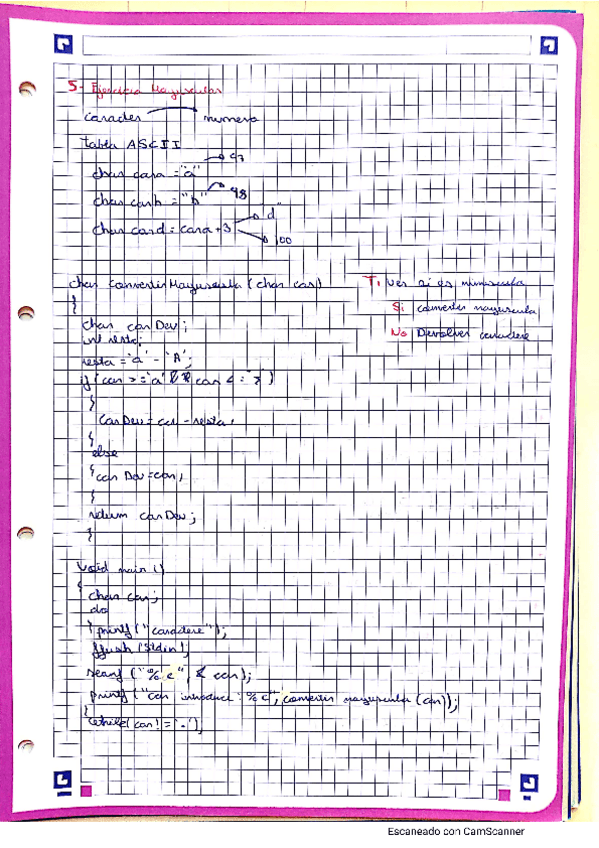 5- Ejercicio Mayusculas
caracter → numero
tabla ASCII
char cara = "a" → 97
char carb = "b" → 98
char card = cara + 3 → d
→ 100
char convertirMayuscula (char car)
{
char carDev;
int resta;
resta = 'a' - 'A';
if (car >= 'a' && car <= 'z')
{
carDev = car - resta;
}
else
{ carDev = car;
}
return carDev;
}
T. Ver si es minuscula
Si convertir mayuscula
No Devolver caractere
void main ()
{
char car;
do
{ printf ("caractere");
fflush (stdin);
scanf ("%c", & car);
printf ("car introduce: %c", convertir mayuscula (car));
} while (car != '.');
Escaneado con CamScanner